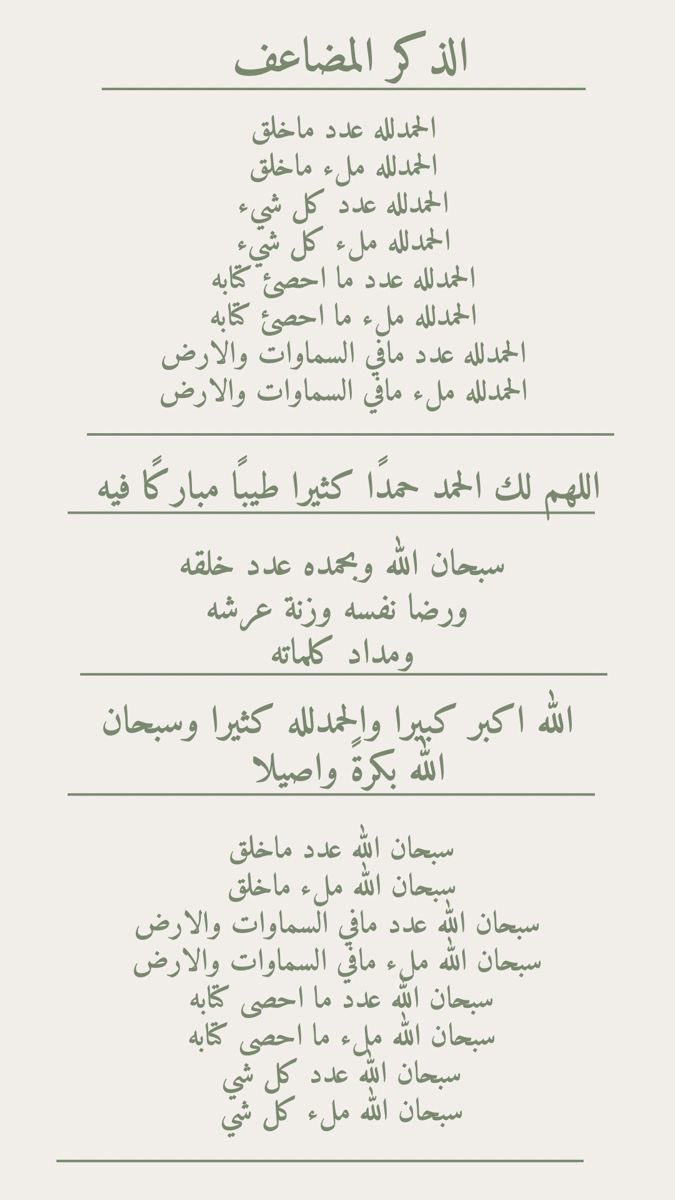 الذكر المضاعف
الحمدلله عدد ماخلق
الحمدلله ملء ماخلق
الحمدلله عدد كل شيء
الحمدلله ملء كل شيء
الحمدلله عدد ما احصئ كتابه
الحمدلله ملء ما احصئ كتابه
الحمدلله عدد مافي السماوات والارض
الحمدلله ملء مافي السماوات والارض
اللهم لك الحمد حمدًا كثيرا طيبًا مباركًا فيه
سبحان الله وبحمده عدد خلقه
ورضا نفسه وزنة عرشه
ومداد كلماته
الله اكبر كبيرا والحمدلله كثيرا وسبحان
الله بكرةً واصيلا
سبحان الله عدد ماخلق
سبحان الله ملء ماخلق
سبحان الله عدد مافي السماوات والارض
سبحان الله ملء مافي السماوات والارض
سبحان الله عدد ما احصى كتابه
سبحان الله ملء ما احصى كتابه
سبحان الله عدد كل شي
سبحان الله ملء كل شي